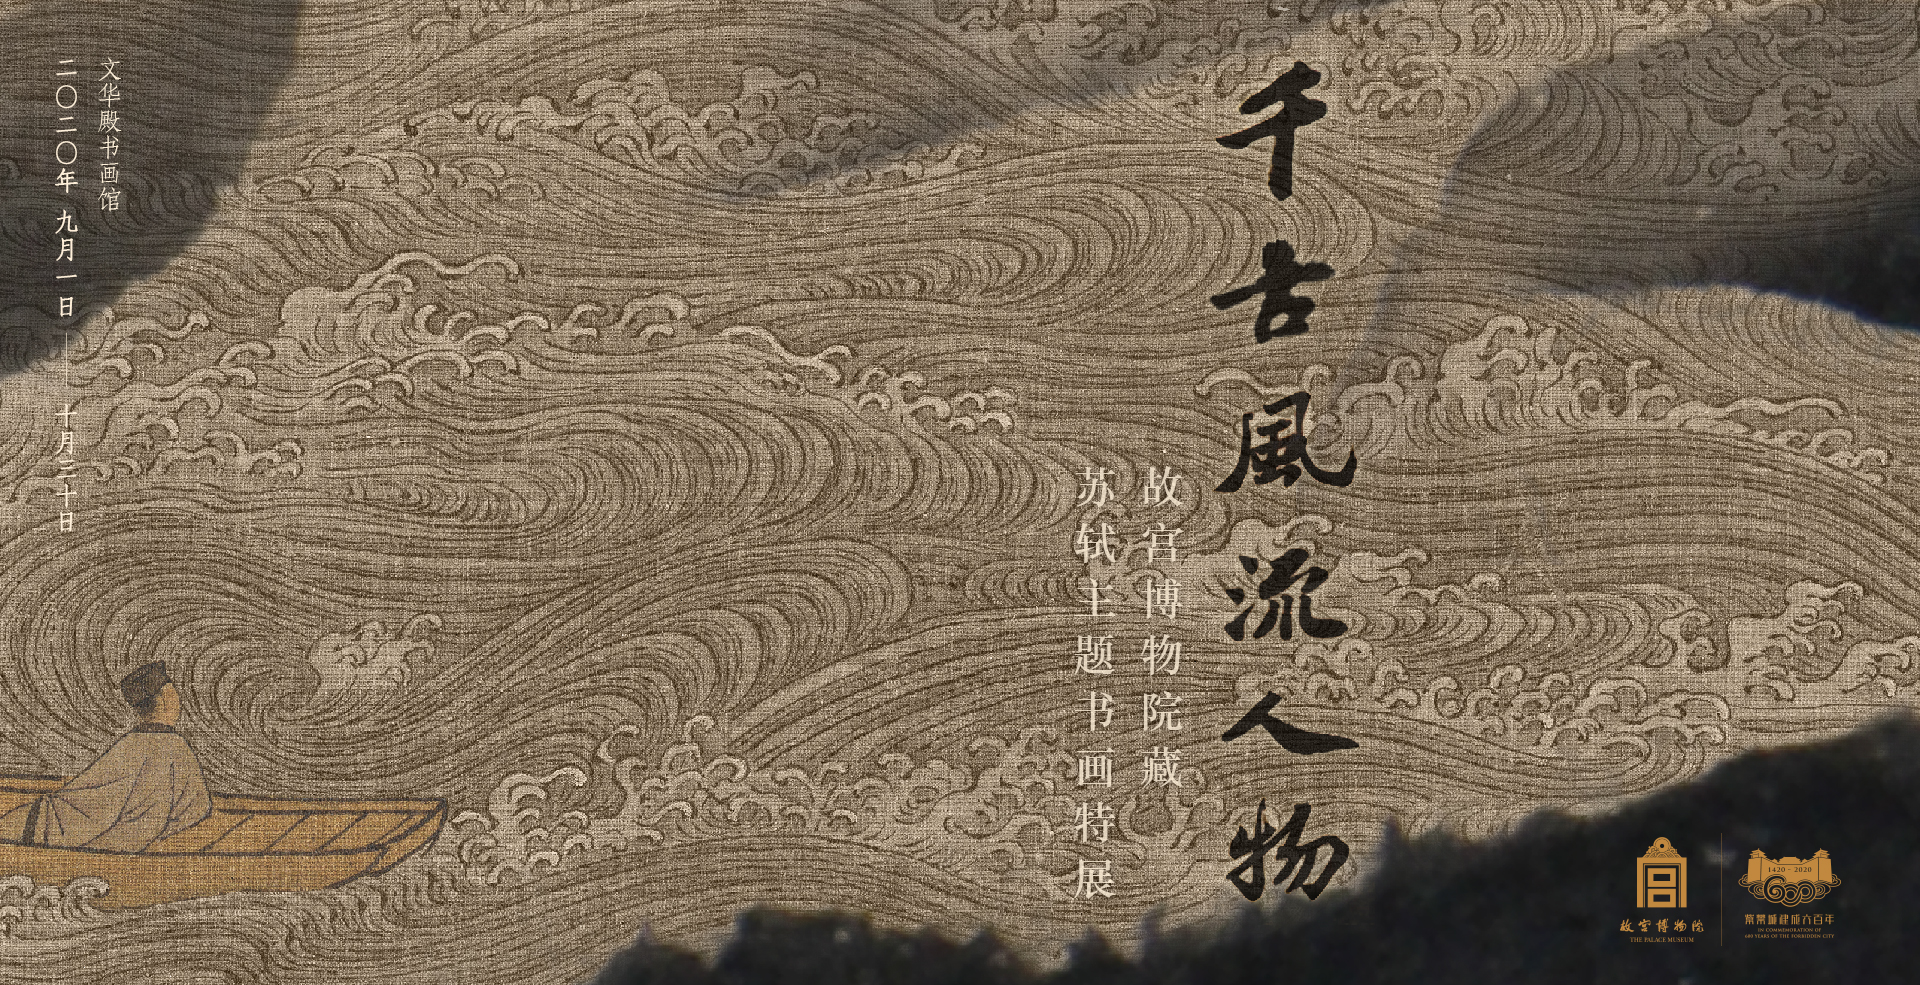 千古風流人物
故宫博物院藏
苏轼主题书画特展
文华殿书画馆
二〇二〇年 九月一日——十月三十日
故宫博物院
THE PALACE MUSEUM
1420-2020
600
紫禁城建成六百年
IN COMMEMORATION OF
600 YEARS OF THE FORBIDDEN CITY